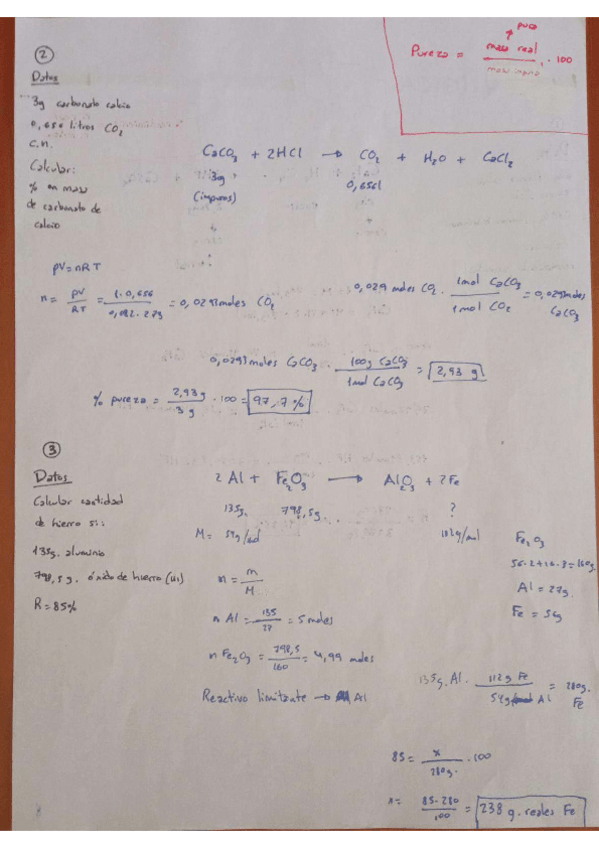 pura
Pureza = masa real / masa · 100
②
Datos
3g carbonato calcio
0,656 litros CO₂
C.N.
Calcular:
% en masa
de carbonato de
calcio
CaCO₃ + 2HCl → CO₂ + H₂O + CaCl₂
3g 0,656l
(impuros)
PV=nRT
n = PV/RT = 1·0,656/0,082·273 = 0,0293 moles CO₂
0,029 moles CO₂ · 1mol CaCO₃/1mol CO₂ = 0,0293 moles CaCO₃
0,0293 moles CaCO₃ · 100g CaCO₃/1mol CaCO₃ = 2,93 g
% pureza = 2,93g/3g · 100 = 97,7%
③
Datos
Calcular cantidad
de hierro si:
135g. aluminio
798,5 g. óxido de hierro (III)
R=85%
2 Al + Fe₂O₃ → Al₂O₃ + 2Fe
135g. 798,5g. ?
M= 54g/mol 112g/mol
Fe₂O₃
56·2+16·3=160g
Al = 27g
Fe = 56g
n = m/M
n Al = 135/27 = 5 moles
n Fe₂O₃ = 798,5/160 = 4,99 moles
Reactivo limitante → Al
135g. Al · 112g Fe/54g Al = 280g. Fe
85 = x/280g. · 100
x= 85·280/100 = 238 g. reales Fe